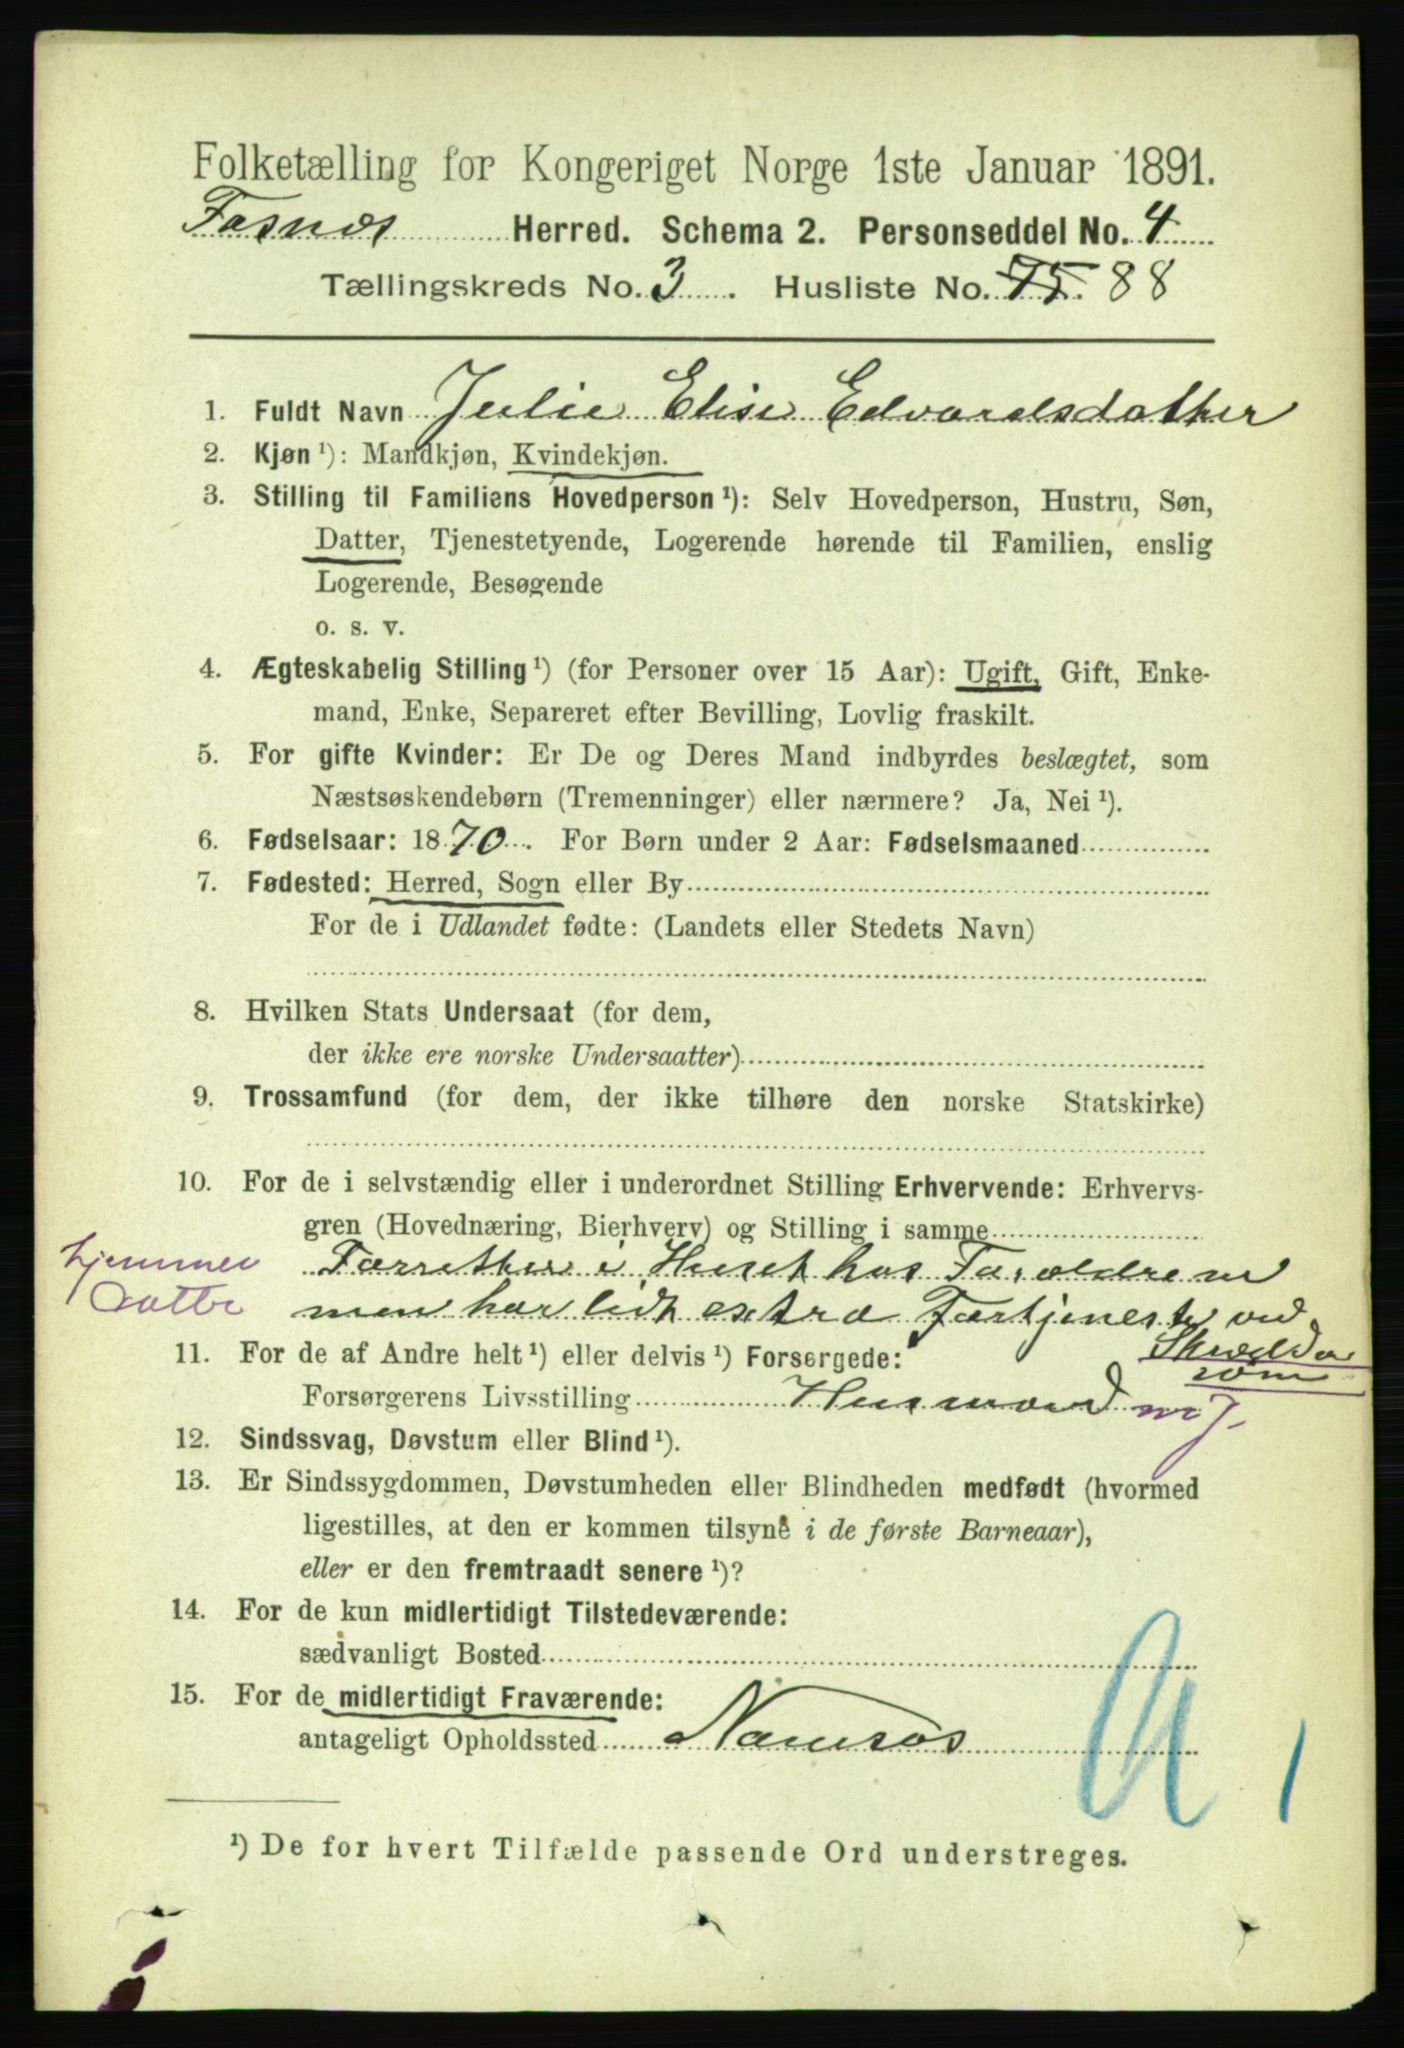 Folketælling for Kongeriget Norge 1ste Januar 1891.
Fosnæs Herred. Schema 2. Personseddel No. 4
Tællingskreds No. 3. Husliste No. 75. 88
1. Fuldt Navn Julie Elise Edvardsdatter
2. Kjøn ¹): Mandkjøn, Kvindekjøn.
3. Stilling til Familiens Hovedperson ¹): Selv Hovedperson, Hustru, Søn,
Datter, Tjenestetyende, Logerende hørende til Familien, enslig
Logerende, Besøgende
o. s. v.
4. Ægteskabelig Stilling ¹) (for Personer over 15 Aar): Ugift, Gift, Enke-
mand, Enke, Separeret efter Bevilling, Lovlig fraskilt.
5. For gifte Kvinder: Er De og Deres Mand indbyrdes beslægtet, som
Næstsøskendebørn (Tremenninger) eller nærmere? Ja, Nei ¹).
6. Fødselsaar: 1870. For Børn under 2 Aar: Fødselsmaaned
7. Fødested: Herred, Sogn eller By
For de i Udlandet fødte: (Landets eller Stedets Navn)
8. Hvilken Stats Undersaat (for dem,
der ikke ere norske Undersaatter)
9. Trossamfund (for dem, der ikke tilhøre den norske Statskirke)
10. For de i selvstændig eller i underordnet Stilling Erhvervende: Erhvervs-
gren (Hovednæring, Bierhverv) og Stilling i samme
hjemmev Forretter i Huset hos Forældrene
Datter men har lidt extra Fortjeneste ved
11. For de af Andre helt ¹) eller delvis ¹) Forsørgede:
Forsørgerens Livsstilling Husmand m J.
12. Sindssvag, Døvstum eller Blind ¹).
13. Er Sindssygdommen, Døvstumheden eller Blindheden medfødt (hvormed
ligestilles, at den er kommen tilsyne i de første Barneaar),
eller er den fremtraadt senere ¹)?
14. For de kun midlertidigt Tilstedeværende:
sædvanligt Bosted
15. For de midlertidigt Fraværende:
antageligt Opholdssted Namsos
¹) De for hvert Tilfælde passende Ord understreges.